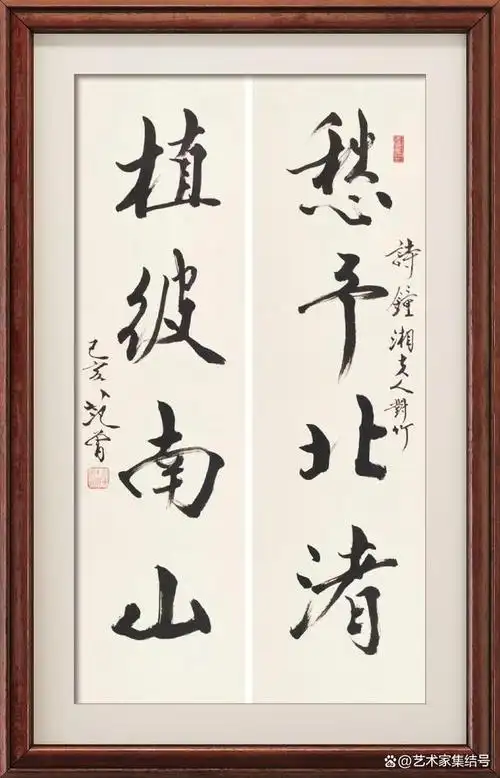 愁予北渚
詩鐘湘夫人對竹
植彼南山
己亥 范曾
@艺术家集结号